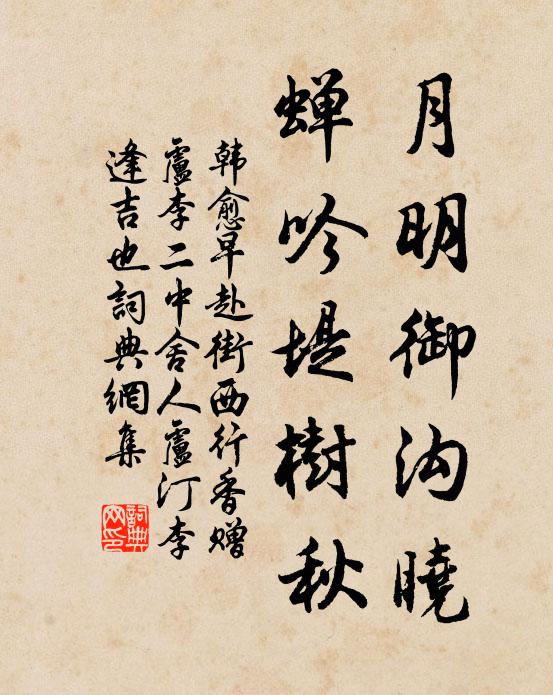 月明御沟曉
蝉吟堤樹秋
韩愈早赴街西行香赠
盧李二中舍人盧汀李
逢吉也詞典網集
詞典
网印